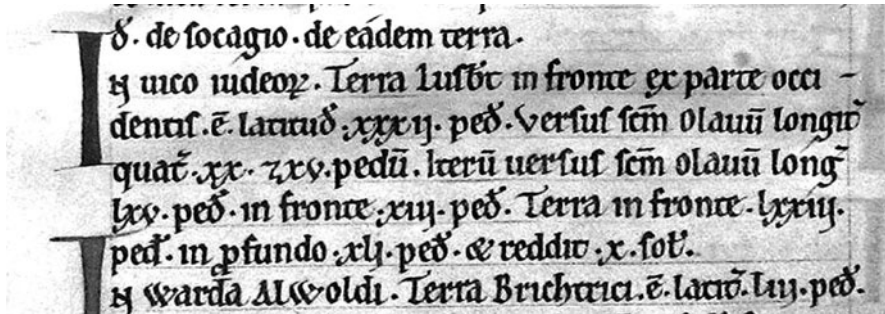 ð. de socagio. de eadem terra.
IN uico iudeoꝝ. Terra Lusbt̄ in fronte ex parte occi-
dentis. ē. Latitud̄ .xxxij. ped̄. Versus scm̄ Olauū longit̄
quat̄ .xx. ⁊xv. pedū. Iterū uersus scm̄ Olauū lonḡ
lxv. ped̄. in fronte .xiij. ped̄. Terra in fronte .lxxiij.
ped̄. in ꝓfundo .xlj. ped̄. & reddit .x. sol̄.
IN Warda Alwoldi. Terra Brichtrici. ē. latit̄. liij. ped̄.